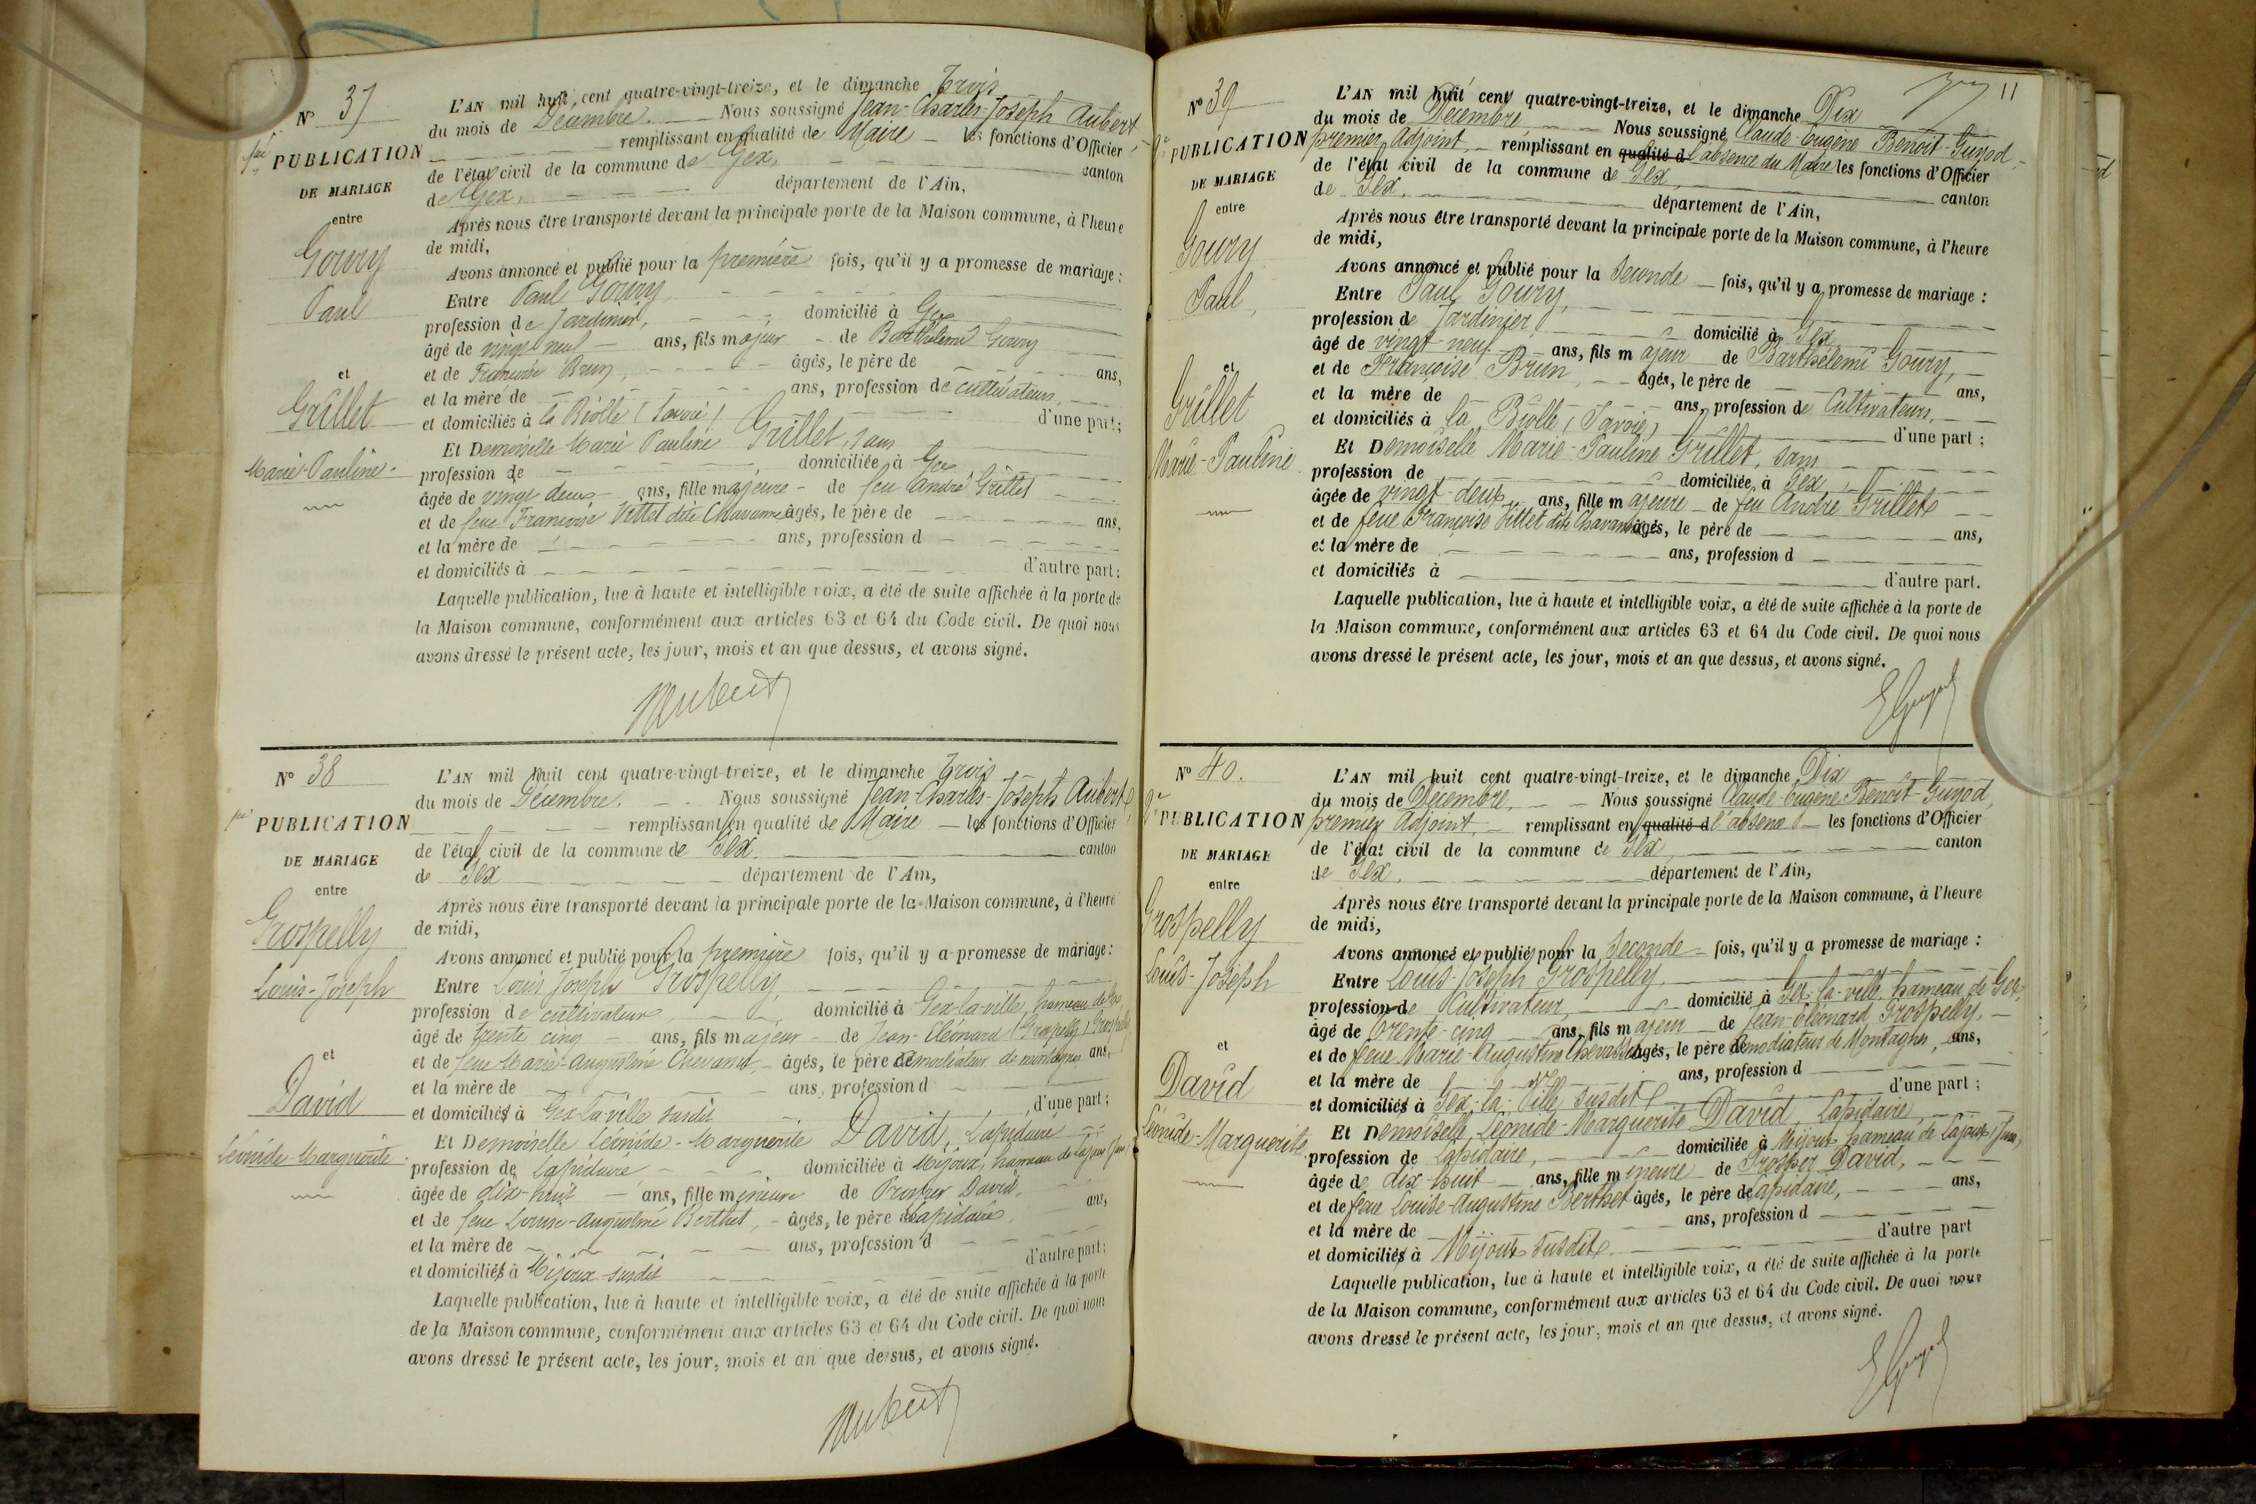 N° 37
1ère PUBLICATION
DE MARIAGE
entre
Goury
Paul
et
Grillet
Marie-Pauline
L'AN mil huit cent quatre-vingt-treize, et le dimanche Trois
du mois de Décembre. Nous soussigné Jean-Charles-Joseph Aubert
remplissant en qualité de Maire les fonctions d'Officier
de l'état civil de la commune de Gex, canton
de Gex, département de l'Ain,
Après nous être transporté devant la principale porte de la Maison commune, à l'heure
de midi,
Avons annoncé et publié pour la première fois, qu'il y a promesse de mariage :
Entre Paul Goury,
profession de Jardinier, domicilié à Gex
âgé de vingt neuf ans, fils majeur de Barthélemi Goury
et de Françoise Brun, âgés, le père de ans,
et la mère de ans, profession de cultivateurs,
et domiciliés à la Biolle (Savoie) d'une part;
Et Demoiselle Marie Pauline Grillet, sans
profession de domiciliée à Gex
âgée de vingt deux ans, fille majeure de feu André Grillet
et de feue Françoise Vittet dite Chavanne âgés, le père de ans,
et la mère de ans, profession d
et domiciliés à d'autre part :
Laquelle publication, lue à haute et intelligible voix, a été de suite affichée à la porte de
la Maison commune, conformément aux articles 63 et 64 du Code civil. De quoi nous
avons dressé le présent acte, les jour, mois et an que dessus, et avons signé.
Aubert
N° 38
1ère PUBLICATION
DE MARIAGE
entre
Grospelly
Louis-Joseph
et
David
Léonide Marguerite
L'AN mil huit cent quatre-vingt-treize, et le dimanche Trois
du mois de Décembre. Nous soussigné Jean-Charles-Joseph Aubert,
remplissant en qualité de Maire les fonctions d'Officier
de l'état civil de la commune de Gex canton
de Gex département de l'Ain,
Après nous être transporté devant la principale porte de la Maison commune, à l'heure
de midi,
Avons annoncé et publié pour la première fois, qu'il y a promesse de mariage :
Entre Louis Joseph Grospelly,
profession de cultivateur, domicilié à Gex-la-ville, hameau de Gex,
âgé de trente cinq ans, fils majeur de Jean-Eléonard (Grospelly) Grospelly
et de feue Marie-Augustine Chevand, âgés, le père amodiateur de montagnes ans,
et la mère de ans, profession d
et domiciliés à Gex-la-ville susdit d'une part ;
Et Demoiselle Léonide-Marguerite David, Lapidaire
profession de lapidaire, domiciliée à Mijoux, hameau de Lajoux (Jura)
âgée de dix-huit ans, fille mineure de Prosper David,
et de feue Louise-Augustine Berthet, âgés, le père lapidaire, ans,
et la mère de ans, profession d
et domiciliés à Mijoux susdit d'autre part :
Laquelle publication, lue à haute et intelligible voix, a été de suite affichée à la porte
de la Maison commune, conformément aux articles 63 et 64 du Code civil. De quoi nous
avons dressé le présent acte, les jour, mois et an que dessus, et avons signé.
Aubert
11
N° 39
2e PUBLICATION
DE MARIAGE
entre
Goury
Paul,
et
Grillet
Marie-Pauline
L'AN mil huit cent quatre-vingt-treize, et le dimanche Dix
du mois de Décembre, Nous soussigné Claude-Eugène Benoît-Guyod,
premier Adjoint, remplissant en qualité d l'absence du Maire les fonctions d'Officier
de l'état civil de la commune de Gex, canton
de Gex, département de l'Ain,
Après nous être transporté devant la principale porte de la Maison commune, à l'heure
de midi,
Avons annoncé et publié pour la Seconde fois, qu'il y a promesse de mariage :
Entre Paul Goury,
profession de Jardinier domicilié à Gex
âgé de vingt-neuf ans, fils majeur de Barthélemi Goury,
et de Françoise Brun, âgés, le père de ans,
et la mère de ans, profession de Cultivateurs,
et domiciliés à la Biolle (Savoie) d'une part ;
Et Demoiselle Marie-Pauline Grillet, sans
profession de domiciliée à Gex,
âgée de vingt-deux ans, fille majeure de feu André Grillet
et de feue Françoise Vittet dite Chavanne âgés, le père de ans,
et la mère de ans, profession d
et domiciliés à d'autre part.
Laquelle publication, lue à haute et intelligible voix, a été de suite affichée à la porte de
la Maison commune, conformément aux articles 63 et 64 du Code civil. De quoi nous
avons dressé le présent acte, les jour, mois et an que dessus, et avons signé.
EGuyod
N° 40.
2e PUBLICATION
DE MARIAGE
entre
Grospelly
Louis-Joseph
et
David
Léonide-Marguerite.
L'AN mil huit cent quatre-vingt-treize, et le dimanche Dix
du mois de Décembre, Nous soussigné Claude-Eugène Benoît-Guyod,
premier Adjoint, remplissant en qualité d l'absence les fonctions d'Officier
de l'état civil de la commune de Gex, canton
de Gex, département de l'Ain,
Après nous être transporté devant la principale porte de la Maison commune, à l'heure
de midi,
Avons annoncé et publié pour la Seconde fois, qu'il y a promesse de mariage :
Entre Louis-Joseph Grospelly,
profession de Cultivateur, domicilié à Gex-la-ville, hameau de Gex,
âgé de trente-cinq ans, fils majeur de Jean-Eléonard Grospelly,
et de feue Marie-Augustine âgés, le père amodiateur de Montagnes, ans,
et la mère de ans, profession d
et domiciliés à Gex-la-Ville susdite d'une part ;
Et Demoiselle Léonide-Marguerite David, Lapidaire,
profession de lapidaire, domiciliée à Mijoux, hameau de Lajoux (Jura)
âgée de dix-huit ans, fille mineure de Prosper David,
et de feue Louise-Augustine Berthet âgés, le père de lapidaire, ans,
et la mère de ans, profession d
et domiciliés à Mijoux susdite d'autre part
Laquelle publication, lue à haute et intelligible voix, a été de suite affichée à la porte
de la Maison commune, conformément aux articles 63 et 64 du Code civil. De quoi nous
avons dressé le présent acte, les jour, mois et an que dessus, et avons signé.
EGuyod